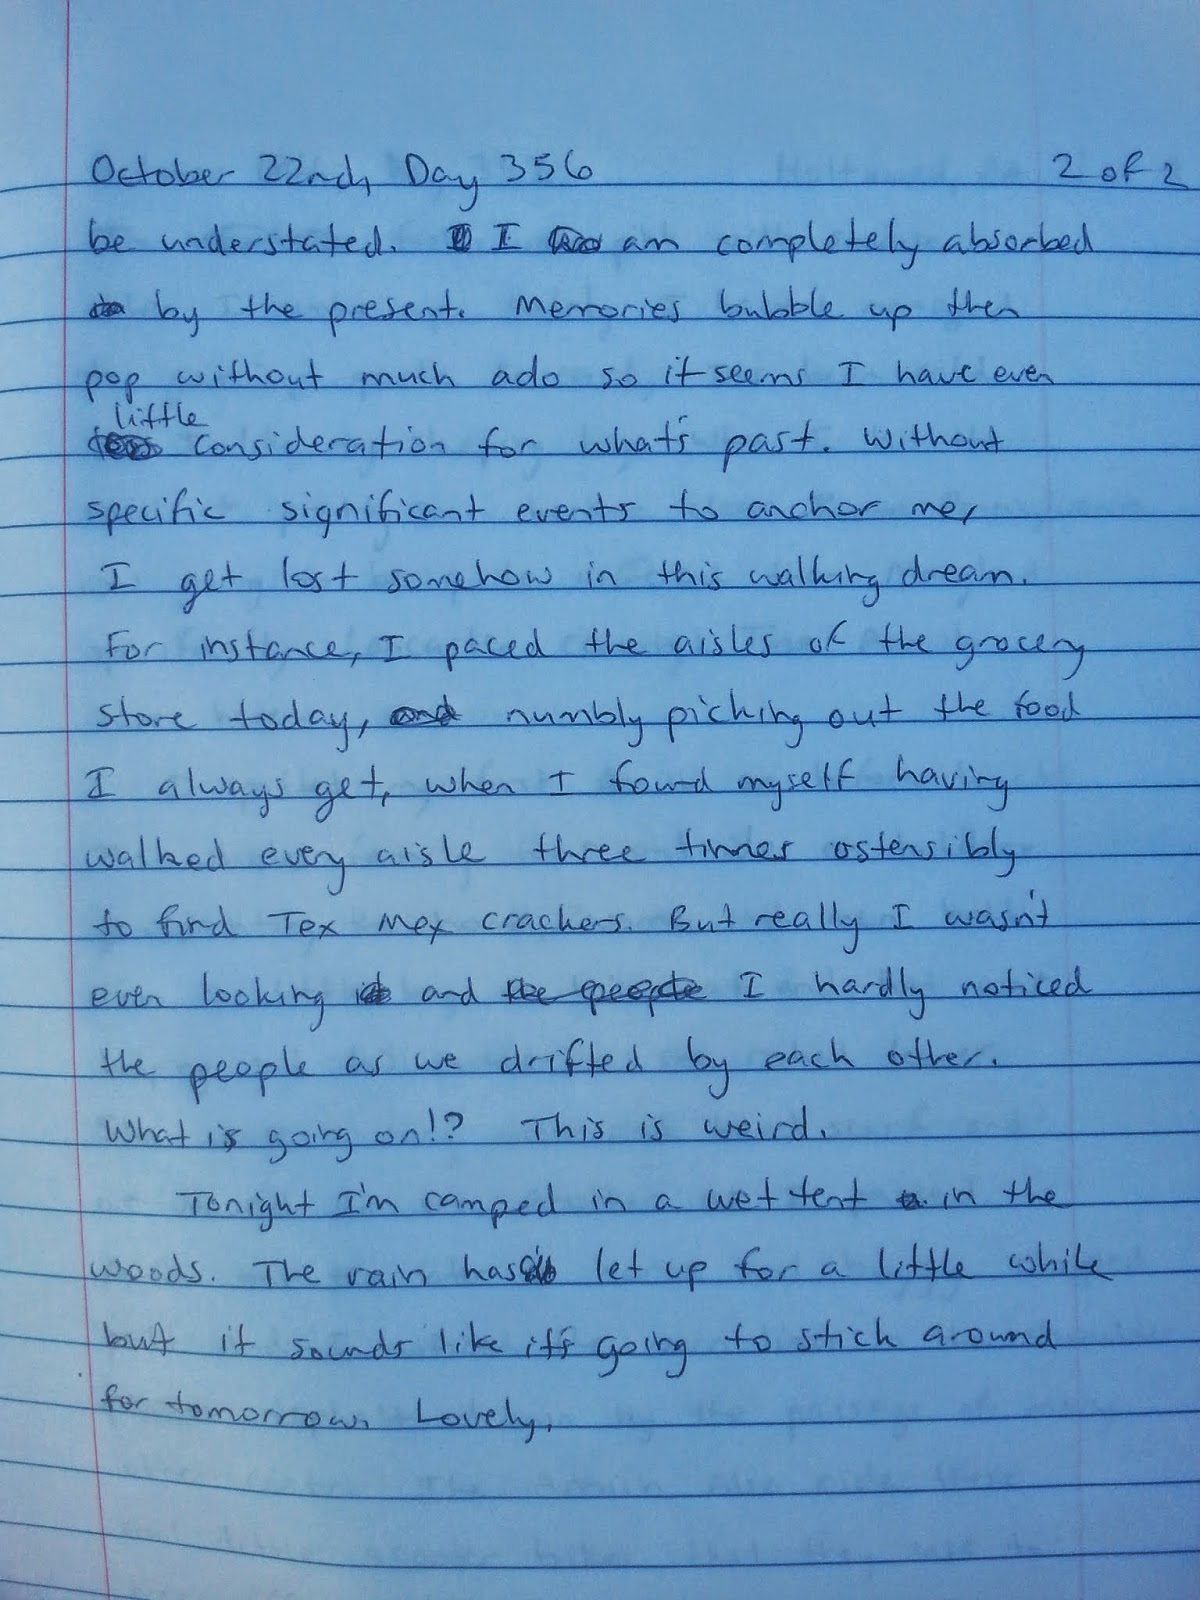 October 22nd, Day 356 2 of 2
be understated. I am completely absorbed
by the present. Memories bubble up then
pop without much ado so it seems I have even
little
consideration for what's past. Without
specific significant events to anchor me,
I get lost somehow in this walking dream.
For instance, I paced the aisles of the grocery
store today, numbly picking out the food
I always get, when I found myself having
walked every aisle three times ostensibly
to find Tex Mex crackers. But really I wasn't
even looking and I hardly noticed
the people as we drifted by each other.
What is going on!? This is weird.
Tonight I'm camped in a wet tent in the
woods. The rain has let up for a little while
but it sounds like it's going to stick around
for tomorrow. Lovely.